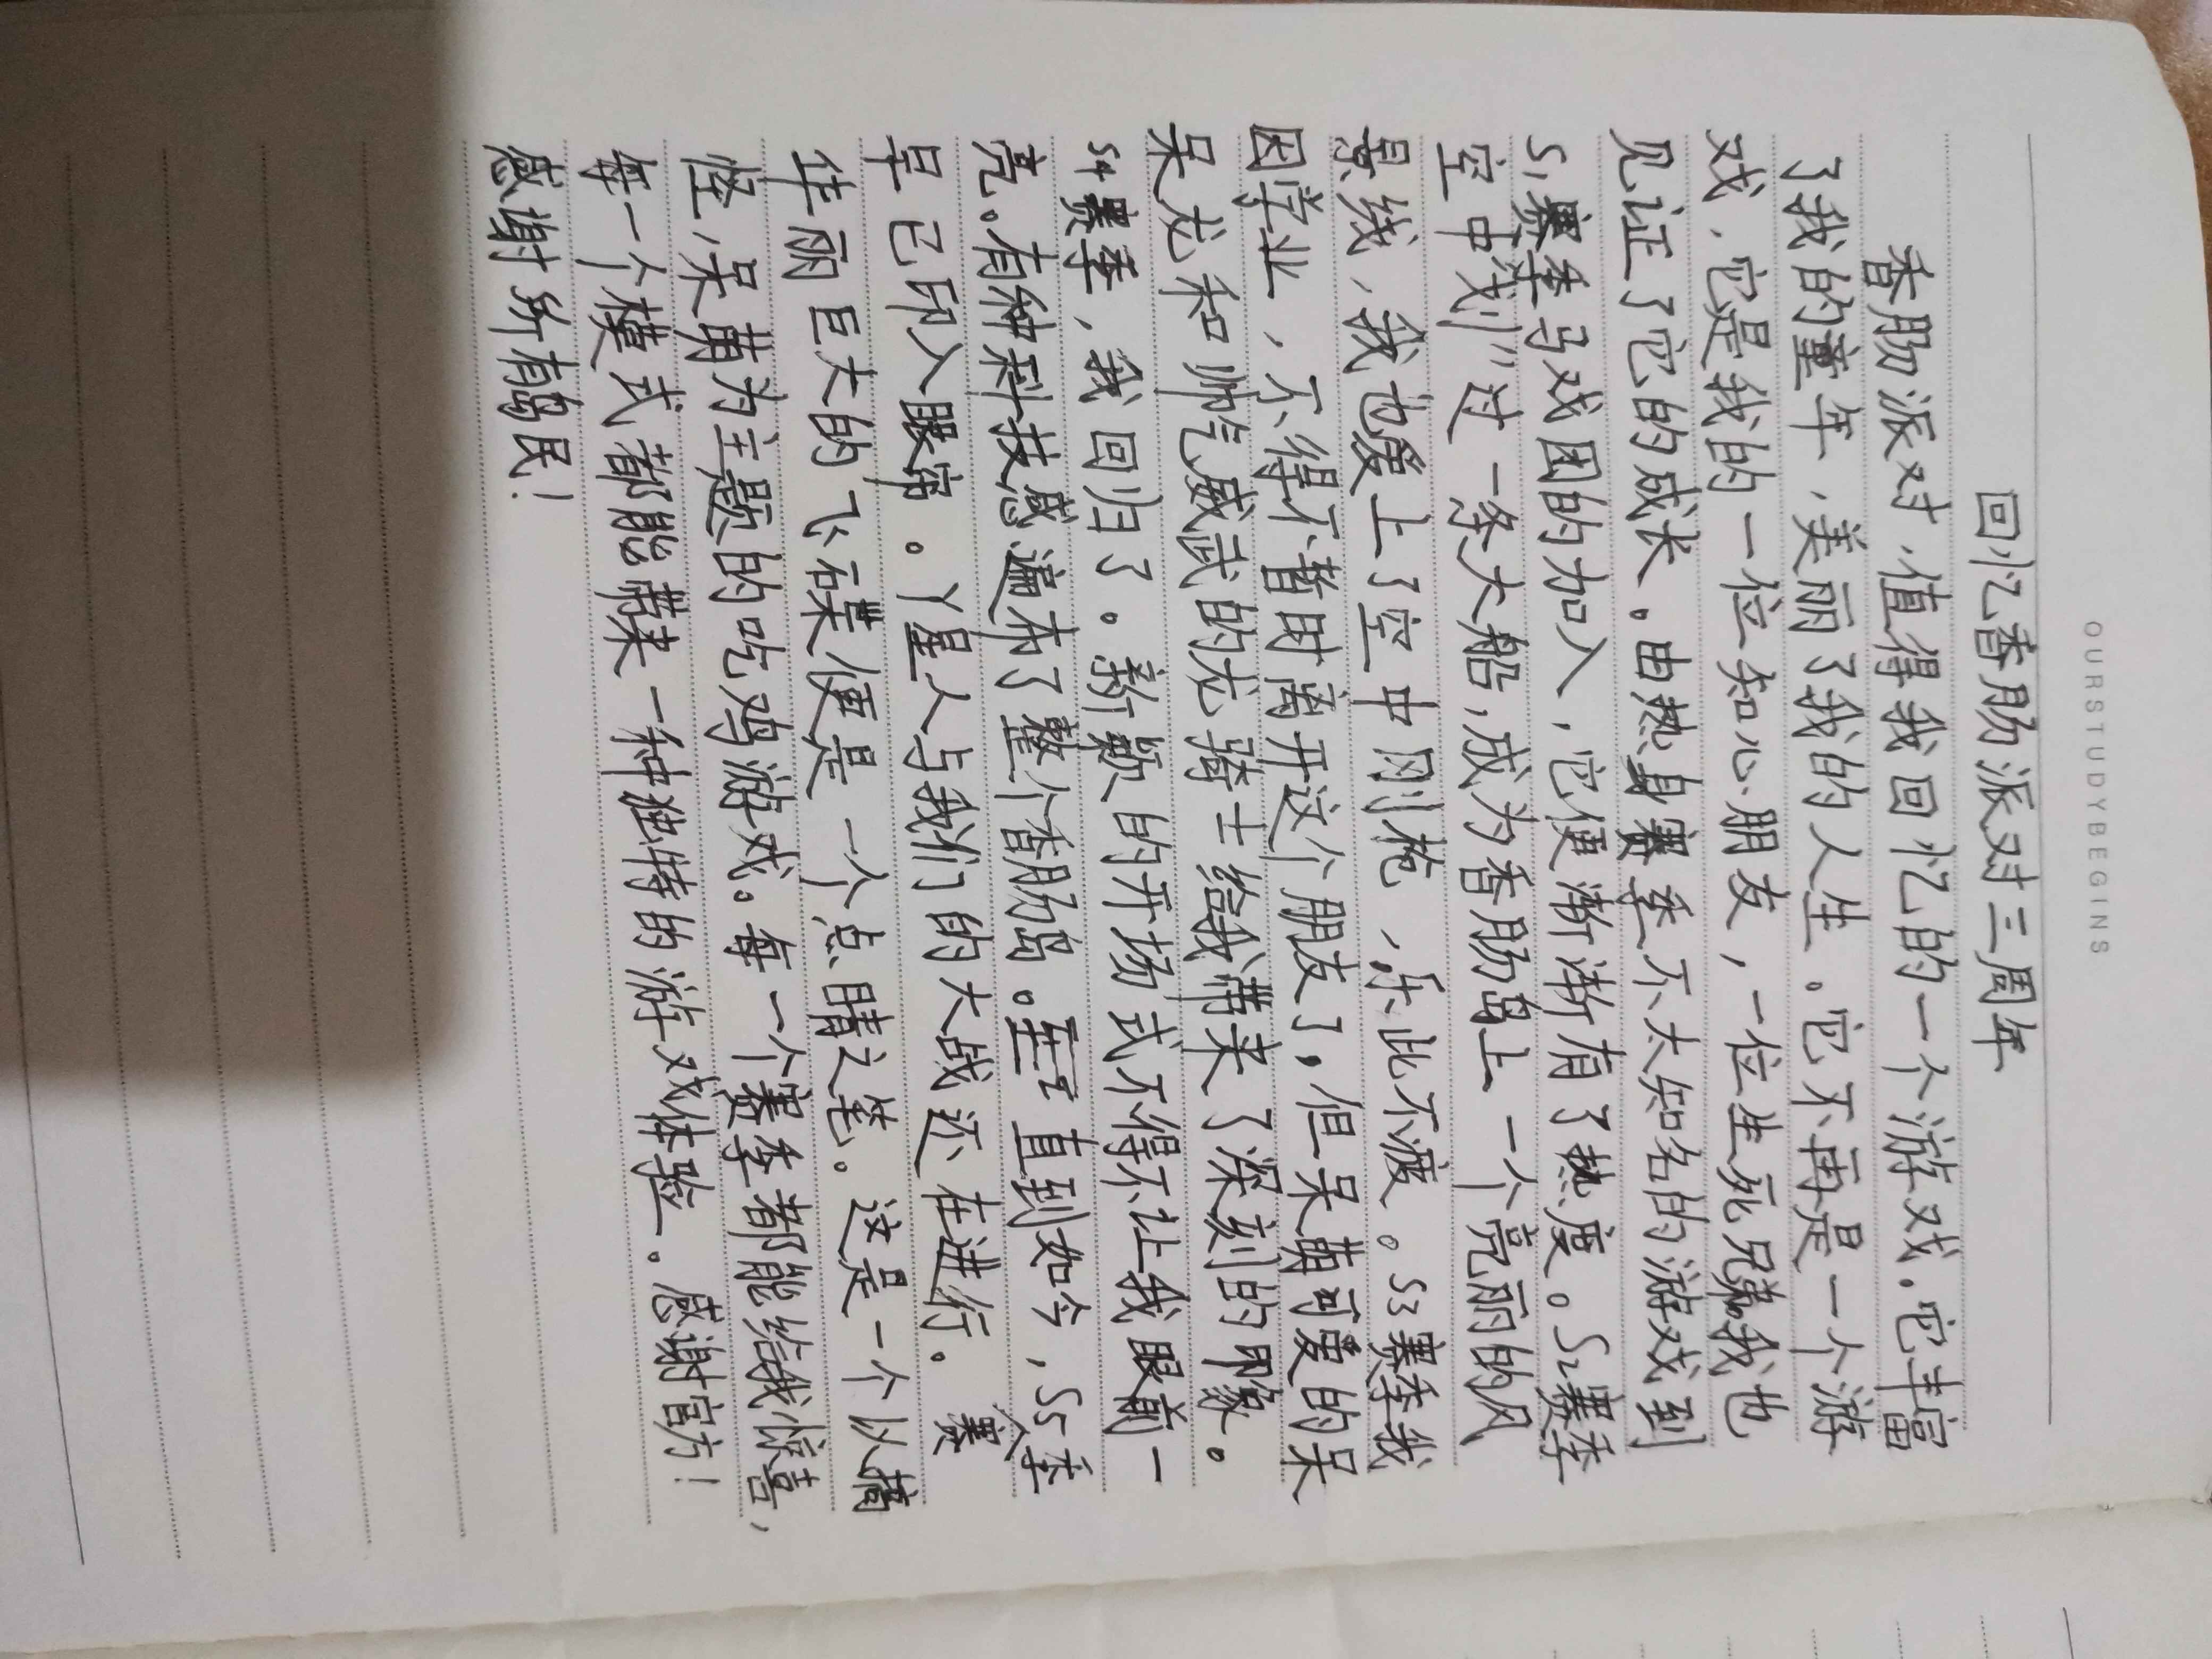 OURSTUDYBEGINS
回忆香肠派对三周年
香肠派对，值得我回忆的一个游戏。它丰富
了我的童年，美丽了我的人生。它不再是一个游
戏，它是我的一位知心朋友，一位生死兄弟。我也
见证了它的成长。由热身赛季不太知名的游戏到
S1赛季马戏团的加入，它便渐渐有了热度。S2赛季
空中划过一条大船，成为香肠岛上一个亮丽的风
景线，我也爱上了空中刚枪，乐此不疲。S3赛季我
因学业，不得不暂时离开这个朋友了，但呆萌可爱的呆
呆龙和帅气威武的龙骑士给我带来了深刻的印象。
S4赛季，我回归了。新颖的开场式不得不让我眼前一
亮。有种科技感遍布了整个香肠岛。直到如今，S5赛季
早已印入眼帘。丫星人与我们的大战还在进行。
华丽巨大的飞碟便是一个点睛之笔。这是一个以搞
怪，呆萌为主题的吃鸡游戏。每一个赛季都能给我惊喜，
每一个模式都能带来一种独特的游戏体验。感谢官方！
感谢所有肠民！